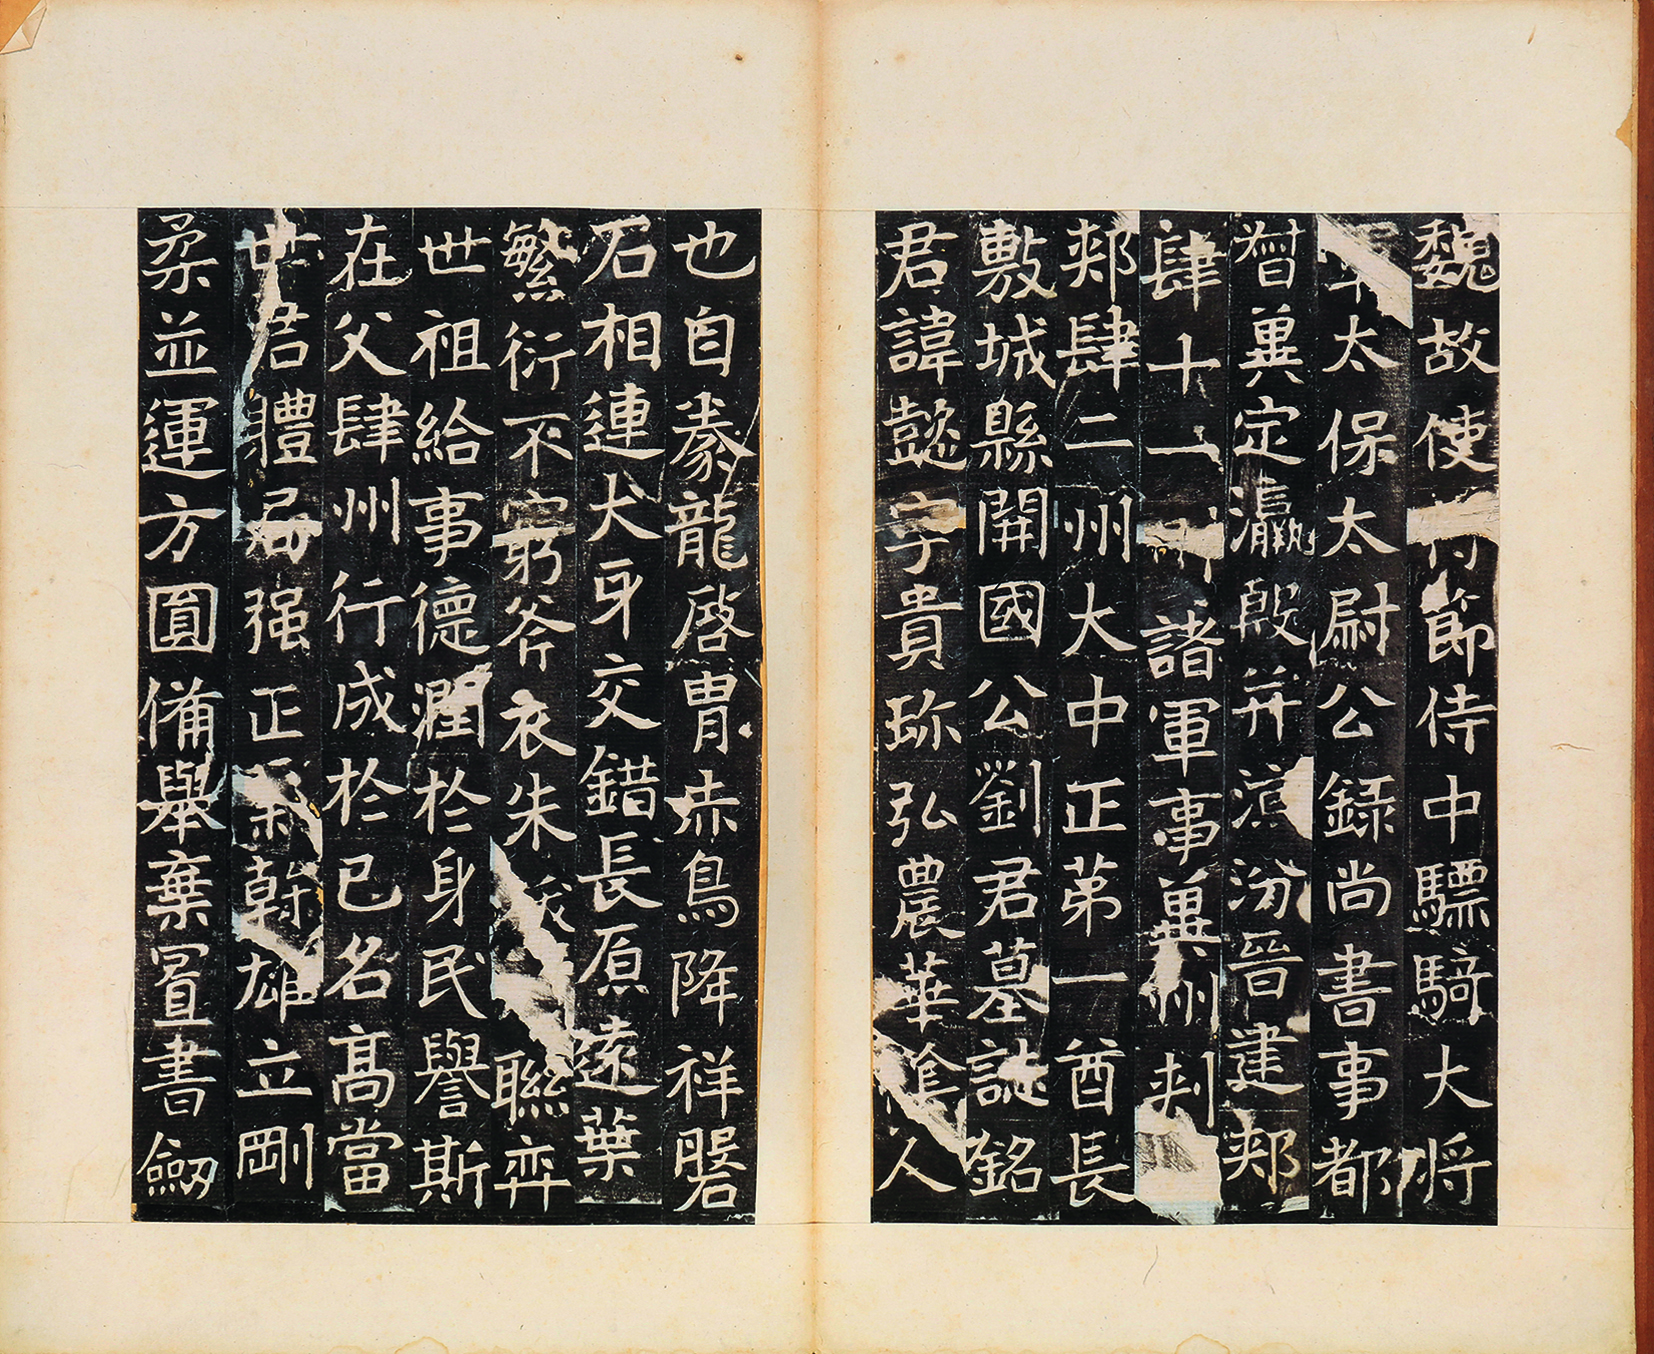 魏故使節侍中驃騎大將
太保太尉公録尚書事都
督冀定瀛殷并滄汾晉建郟
肆十一州諸軍事冀州刺
郟肆二州大中正苐一酋長
敷城縣開國公劉君墓誌銘
君諱懿字貴珎弘農華陰人
也自豢龍啓胄赤鳥降祥磐
石相連犬牙交錯長原遠葉
繁衍不窮斧衣朱紱聯弈
世祖給事德潤於身民譽斯
在父肆州行成於己名髙當
世君體局强正氣幹雄立剛
柔並運方圓俻舉棄置書劒